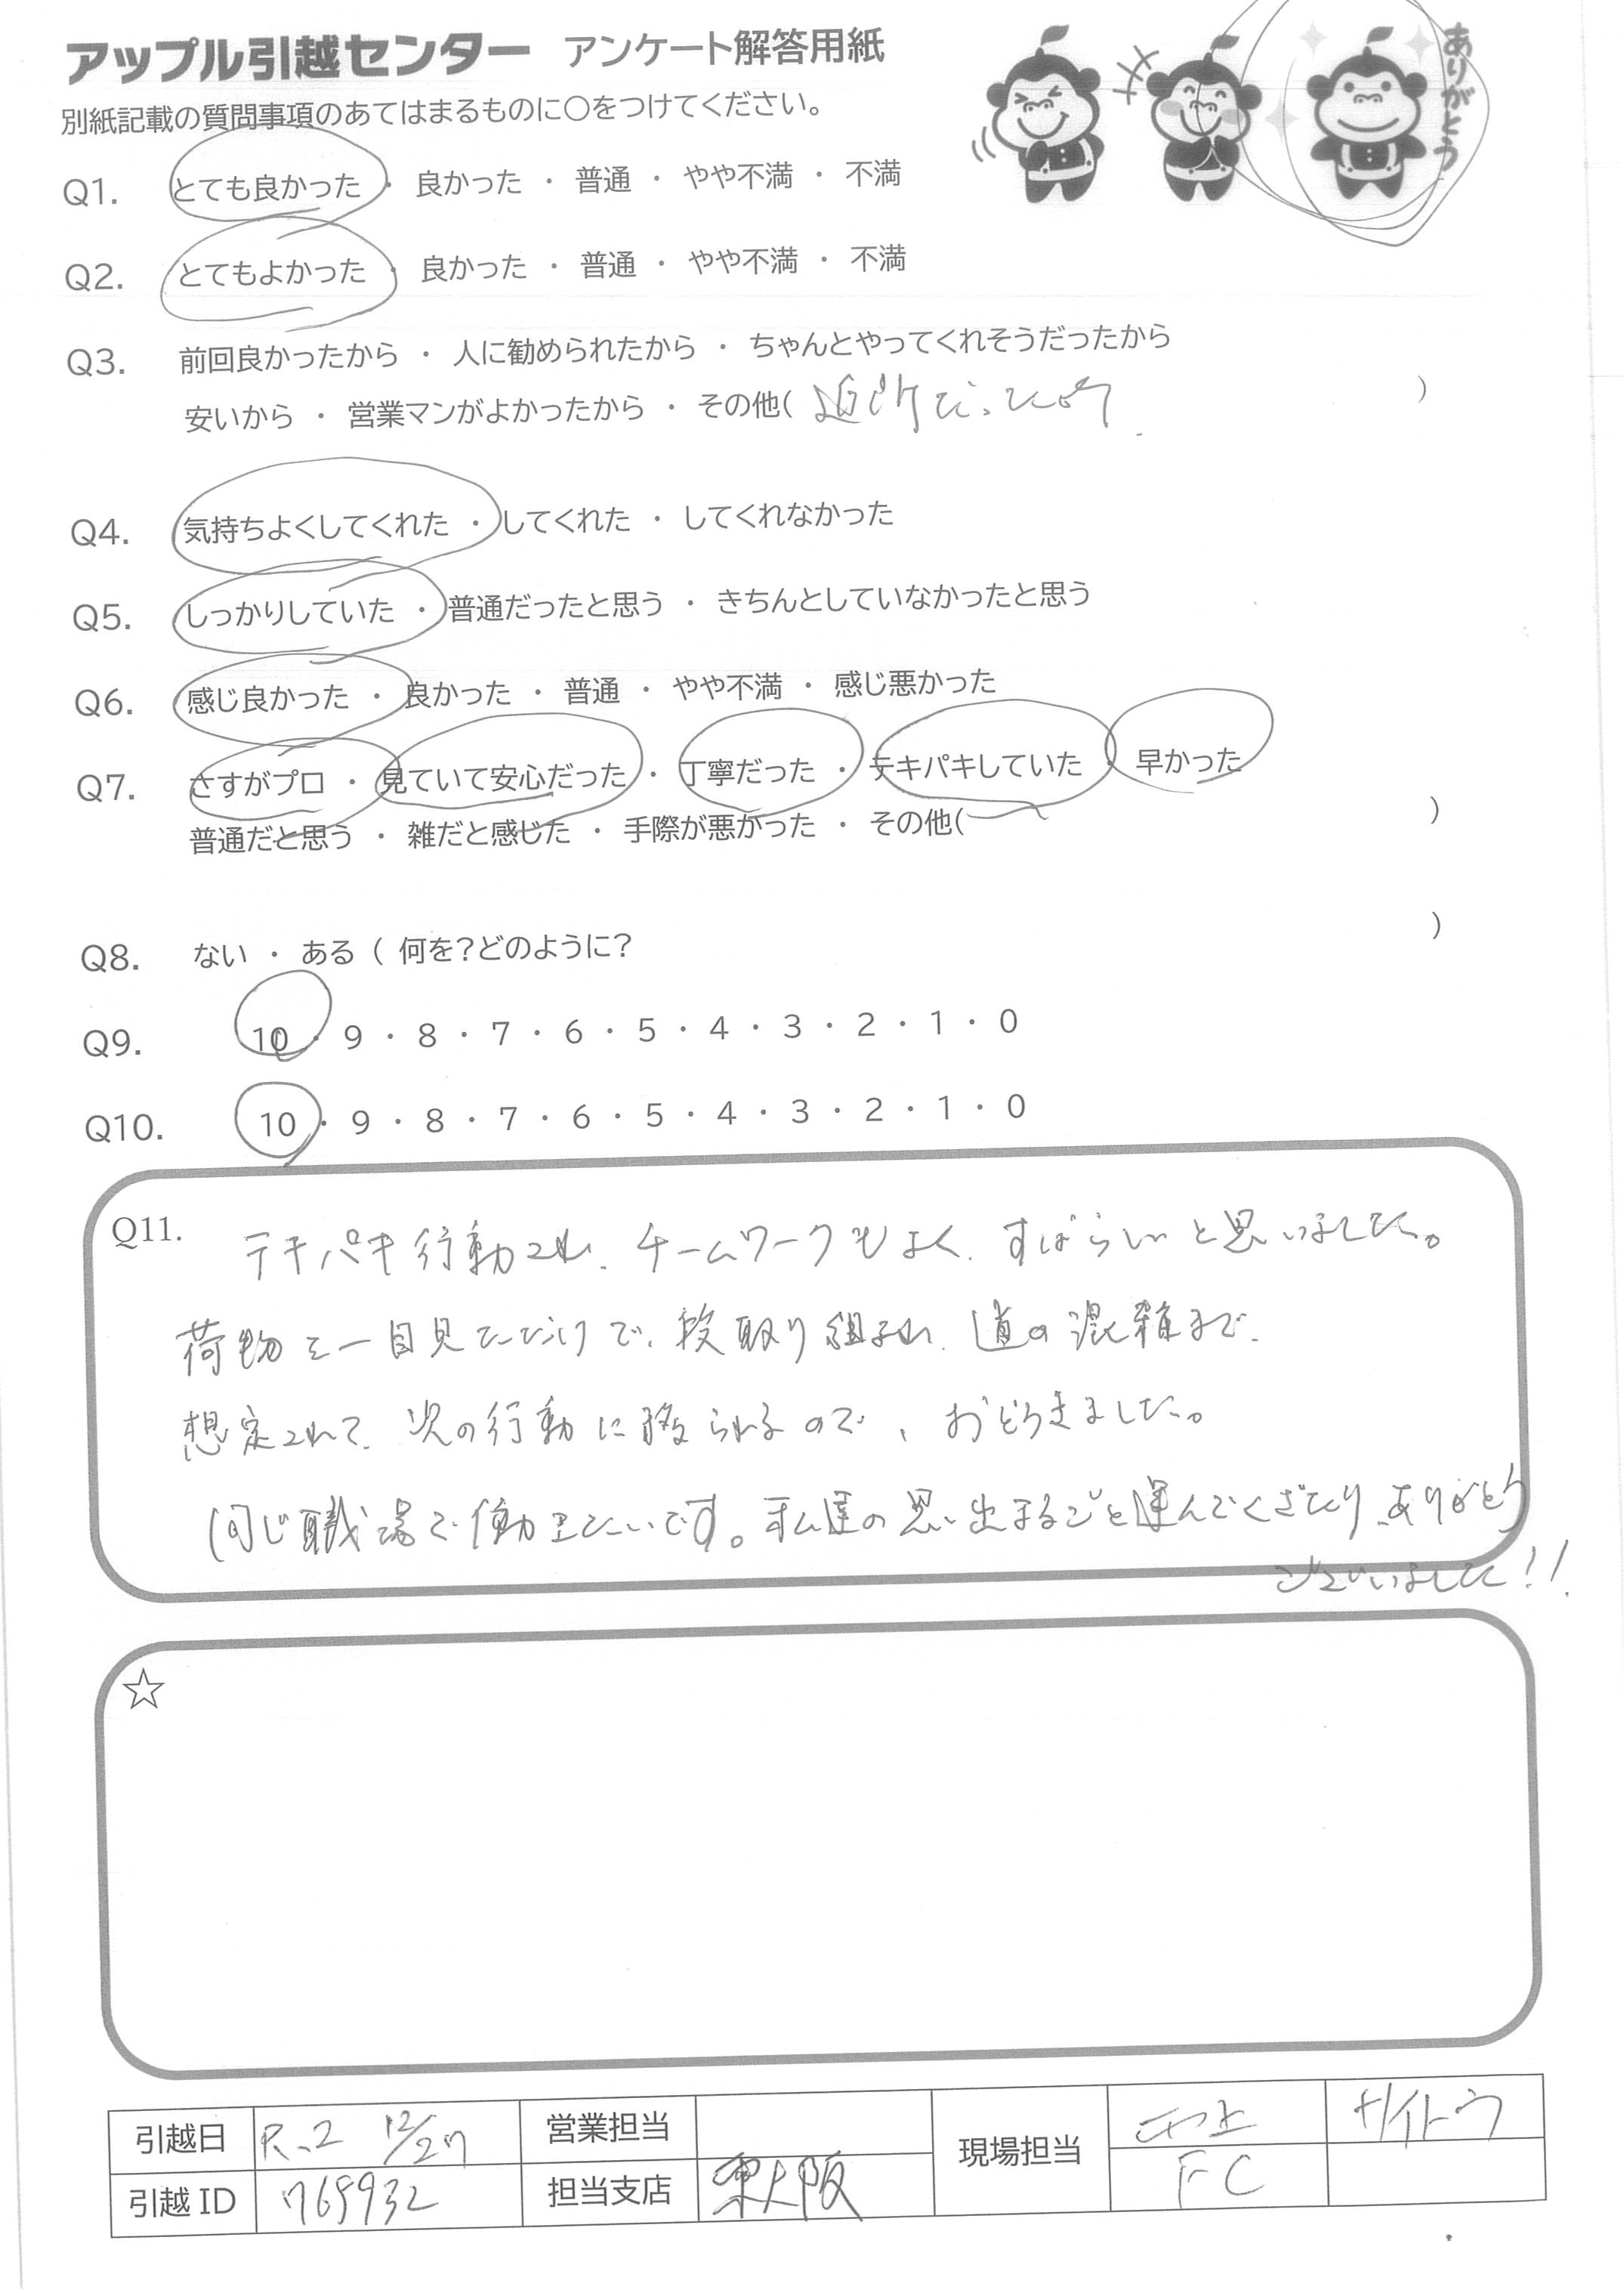 アップル引越センター アンケート解答用紙
別紙記載の質問事項のあてはまるものに○をつけてください。
ありがとう
Q1. とても良かった ・ 良かった ・ 普通 ・ やや不満 ・ 不満
Q2. とてもよかった ・ 良かった ・ 普通 ・ やや不満 ・ 不満
Q3. 前回良かったから ・ 人に勧められたから ・ ちゃんとやってくれそうだったから
安いから ・ 営業マンがよかったから ・ その他( 近所だったから )
Q4. 気持ちよくしてくれた ・ してくれた ・ してくれなかった
Q5. しっかりしていた ・ 普通だったと思う ・ きちんとしていなかったと思う
Q6. 感じ良かった ・ 良かった ・ 普通 ・ やや不満 ・ 感じ悪かった
Q7. さすがプロ ・ 見ていて安心だった ・ 丁寧だった ・ テキパキしていた ・ 早かった
普通だと思う ・ 雑だと感じた ・ 手際が悪かった ・ その他( )
Q8. ない ・ ある ( 何を?どのように? )
Q9. 10 ・ 9 ・ 8 ・ 7 ・ 6 ・ 5 ・ 4 ・ 3 ・ 2 ・ 1 ・ 0
Q10. 10 ・ 9 ・ 8 ・ 7 ・ 6 ・ 5 ・ 4 ・ 3 ・ 2 ・ 1 ・ 0
Q11. テキパキ行動され、チームワークもよく、すばらしいと思いました。
荷物を一目見ただけで、段取り組まれ、道の混雑まで、
想定されて、次の行動に移られるので、おどろきました。
同じ職場で働きたいです。私達の思い出まるごと運んでくださり、ありがとう
ございました!!
☆
引越日 R.2 12/27 営業担当 現場担当 サイトウ
引越ID 765932 担当支店 東大阪 FC